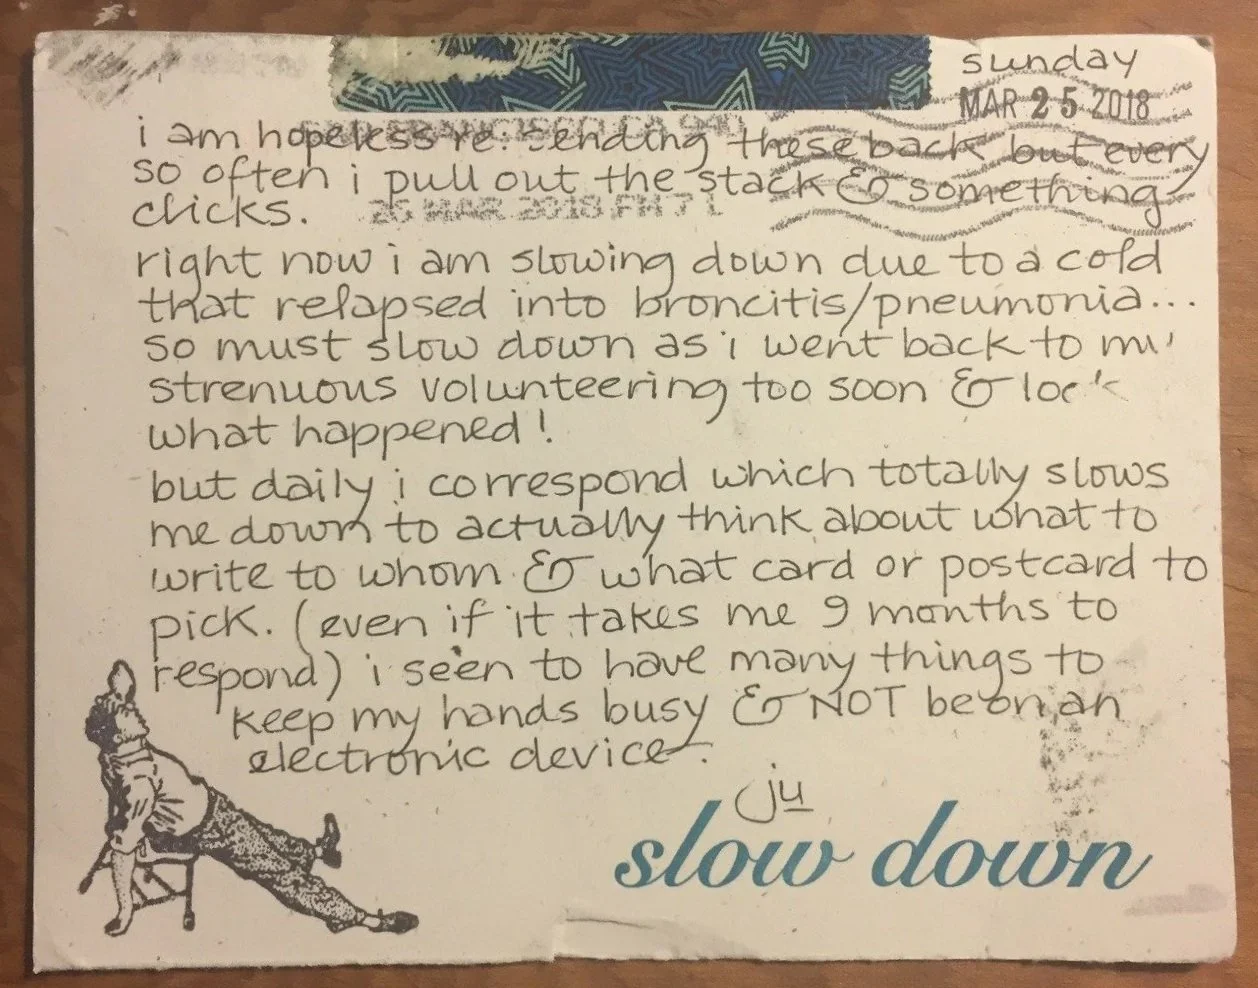 sunday
MAR 25 2018
SAN FRANCISCO CA 940
i am hopeless re: sending these back but every
so often i pull out the stack & something
26 MAR 2018 PM 7 L
clicks.
right now i am slowing down due to a cold
that relapsed into broncitis/pneumonia...
so must slow down as i went back to my
strenuous volunteering too soon & look
what happened!
but daily i correspond which totally slows
me down to actually think about what to
write to whom & what card or postcard to
pick. (even if it takes me 9 months to
respond) i seen to have many things to
keep my hands busy & NOT be on an
electronic device.
ju
slow down